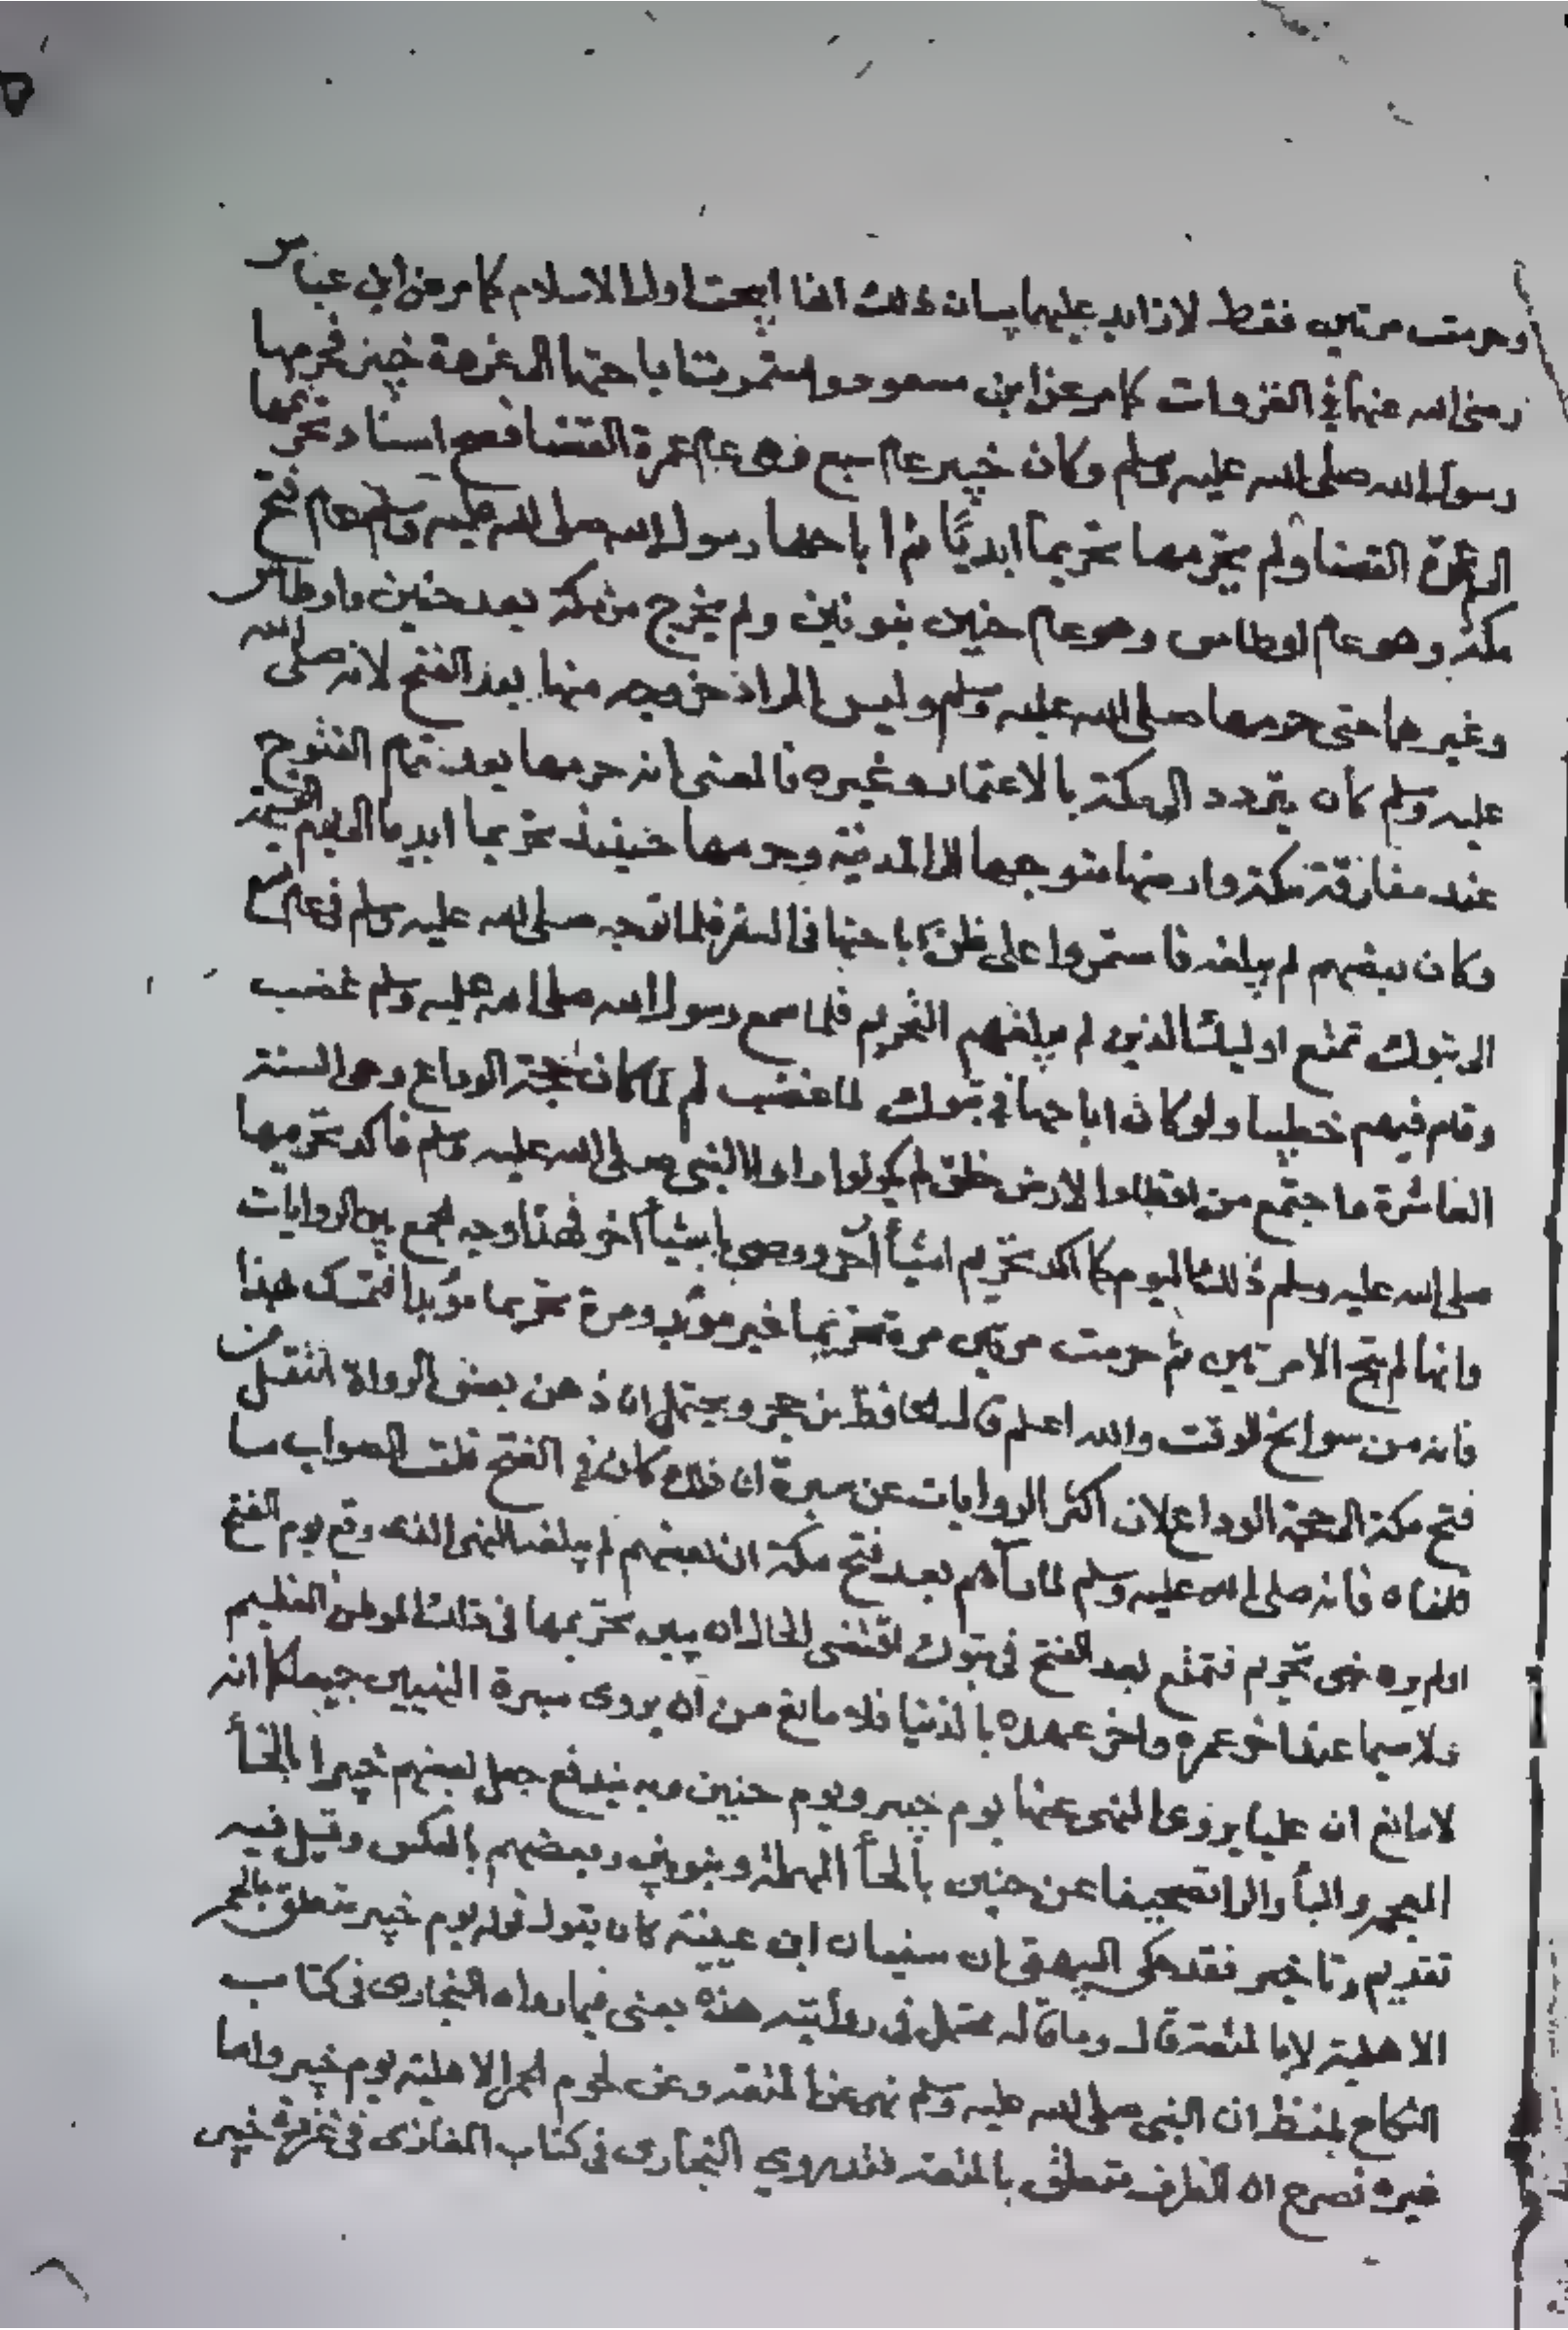 وحرمت مرتين فقط لا زايد عليهما بيان ذلك انها ابيحت اول الاسلام كما مر عن ابن عباس
رضي الله عنهما في الغزوات كما مر عن ابن مسعود واستمرت اباحتها الى غزوة خيبر فحرمها
رسول الله صلى الله عليه وسلم وكان خيبر عام سبع فهو عام عمرة القضا فصح اسناد تحريمها
الى عمرة القضا ولم يحرمها تحريما ابديا ثم اباحها رسول الله صلى الله عليه وسلم عام فتح
مكة وهو عام اوطاس وهو عام حنين بنونين ولم يخرج من مكة بعد حنين واوطاس
وغيرها حتى حرمها صلى الله عليه وسلم وليس المراد خروجه منها بعد الفتح لانه صلى الله
عليه وسلم كان يتردد الى مكة بالاعتمار وغيره فالمعنى انه حرمها بعد تمام الفتوح
عند مفارقة مكة وارضها متوجها الى المدينة وحرمها حينيذ تحريما ابديا الى يوم القيمة
وكان بعضهم لم يبلغه فاستمروا على ظن اباحتها في السفر فلما توجه صلى الله عليه وسلم في عام تسع
الى تبوك تمتع اوليك الذين لم يبلغهم التحريم فلما سمع رسول الله صلى الله عليه وسلم غضب
وقام فيهم خطيبا ولو كان اباحها في تبوك لما غضب ثم لما كان حجة الوداع وهي السنة
العاشرة فاجتمع من اقطار الارض خلق لم يكونوا راوا النبي صلى الله عليه وسلم فاكد تحريمها
صلى الله عليه وسلم ذلك اليوم كما اكد تحريم اشيأ اخر ووصى باشيأ اخر فهذا وجه لجمع بين الروايات
وانها لم تبح الا مرتين ثم حرمت مرتين مرة تحريما غير موبد ومرة تحريما موبدا فتمسك هذا
فانه من سوانح الوقت والله اعلم قال الحافظ بن حجر ويحتمل ان ذهن بعض الرواة انتقل من
فتح مكة الى حجة الوداع لان اكثر الروايات عن سبرة ان ذلك كان في الفتح قلت الصواب ما
قلناه فانه صلى الله عليه وسلم لما رآهم بعد فتح مكة ان بعضهم لم يبلغه النهى الذى وقع يوم الفتح
اولم يره نهى تحريم فتمتع بعد الفتح في تبوك اقتضى الحال ان يبين تحريمها في ذلك الموطن العظيم
ولا سيما عند اخر عمره واخر عهده بالدنيا فلا مانع من ان يروى سبرة النهيين جميعا كما انه
لا مانع ان عليا يروى النهى عنها يوم خيبر ويوم حنين وبه يندفع جعل بعضهم خيبرا بالخأ
المعجمة والبأ والرا تصحيفا عن حنين بالحأ المهملة وبنونين وبعضهم بالعكس وقيل فيه
تقديم وتاخير فقد حكى البيهقي ان سفيان ابن عيينة كان يقول قوله يوم خيبر متعلق بالحمر
الاهلية لا بالمتعة قال وما قاله محتمل في روايته هذه يعنى فيما رواه البخارى في كتاب
النكاح بلفظ ان النبي صلى الله عليه وسلم نهى عن المتعة وعن لحوم الحمر الاهلية يوم خيبر واما
غيره فصرح ان الظرف متعلق بالمتعة فقد روي البخارى في كتاب المغازى في غزوة خيبر